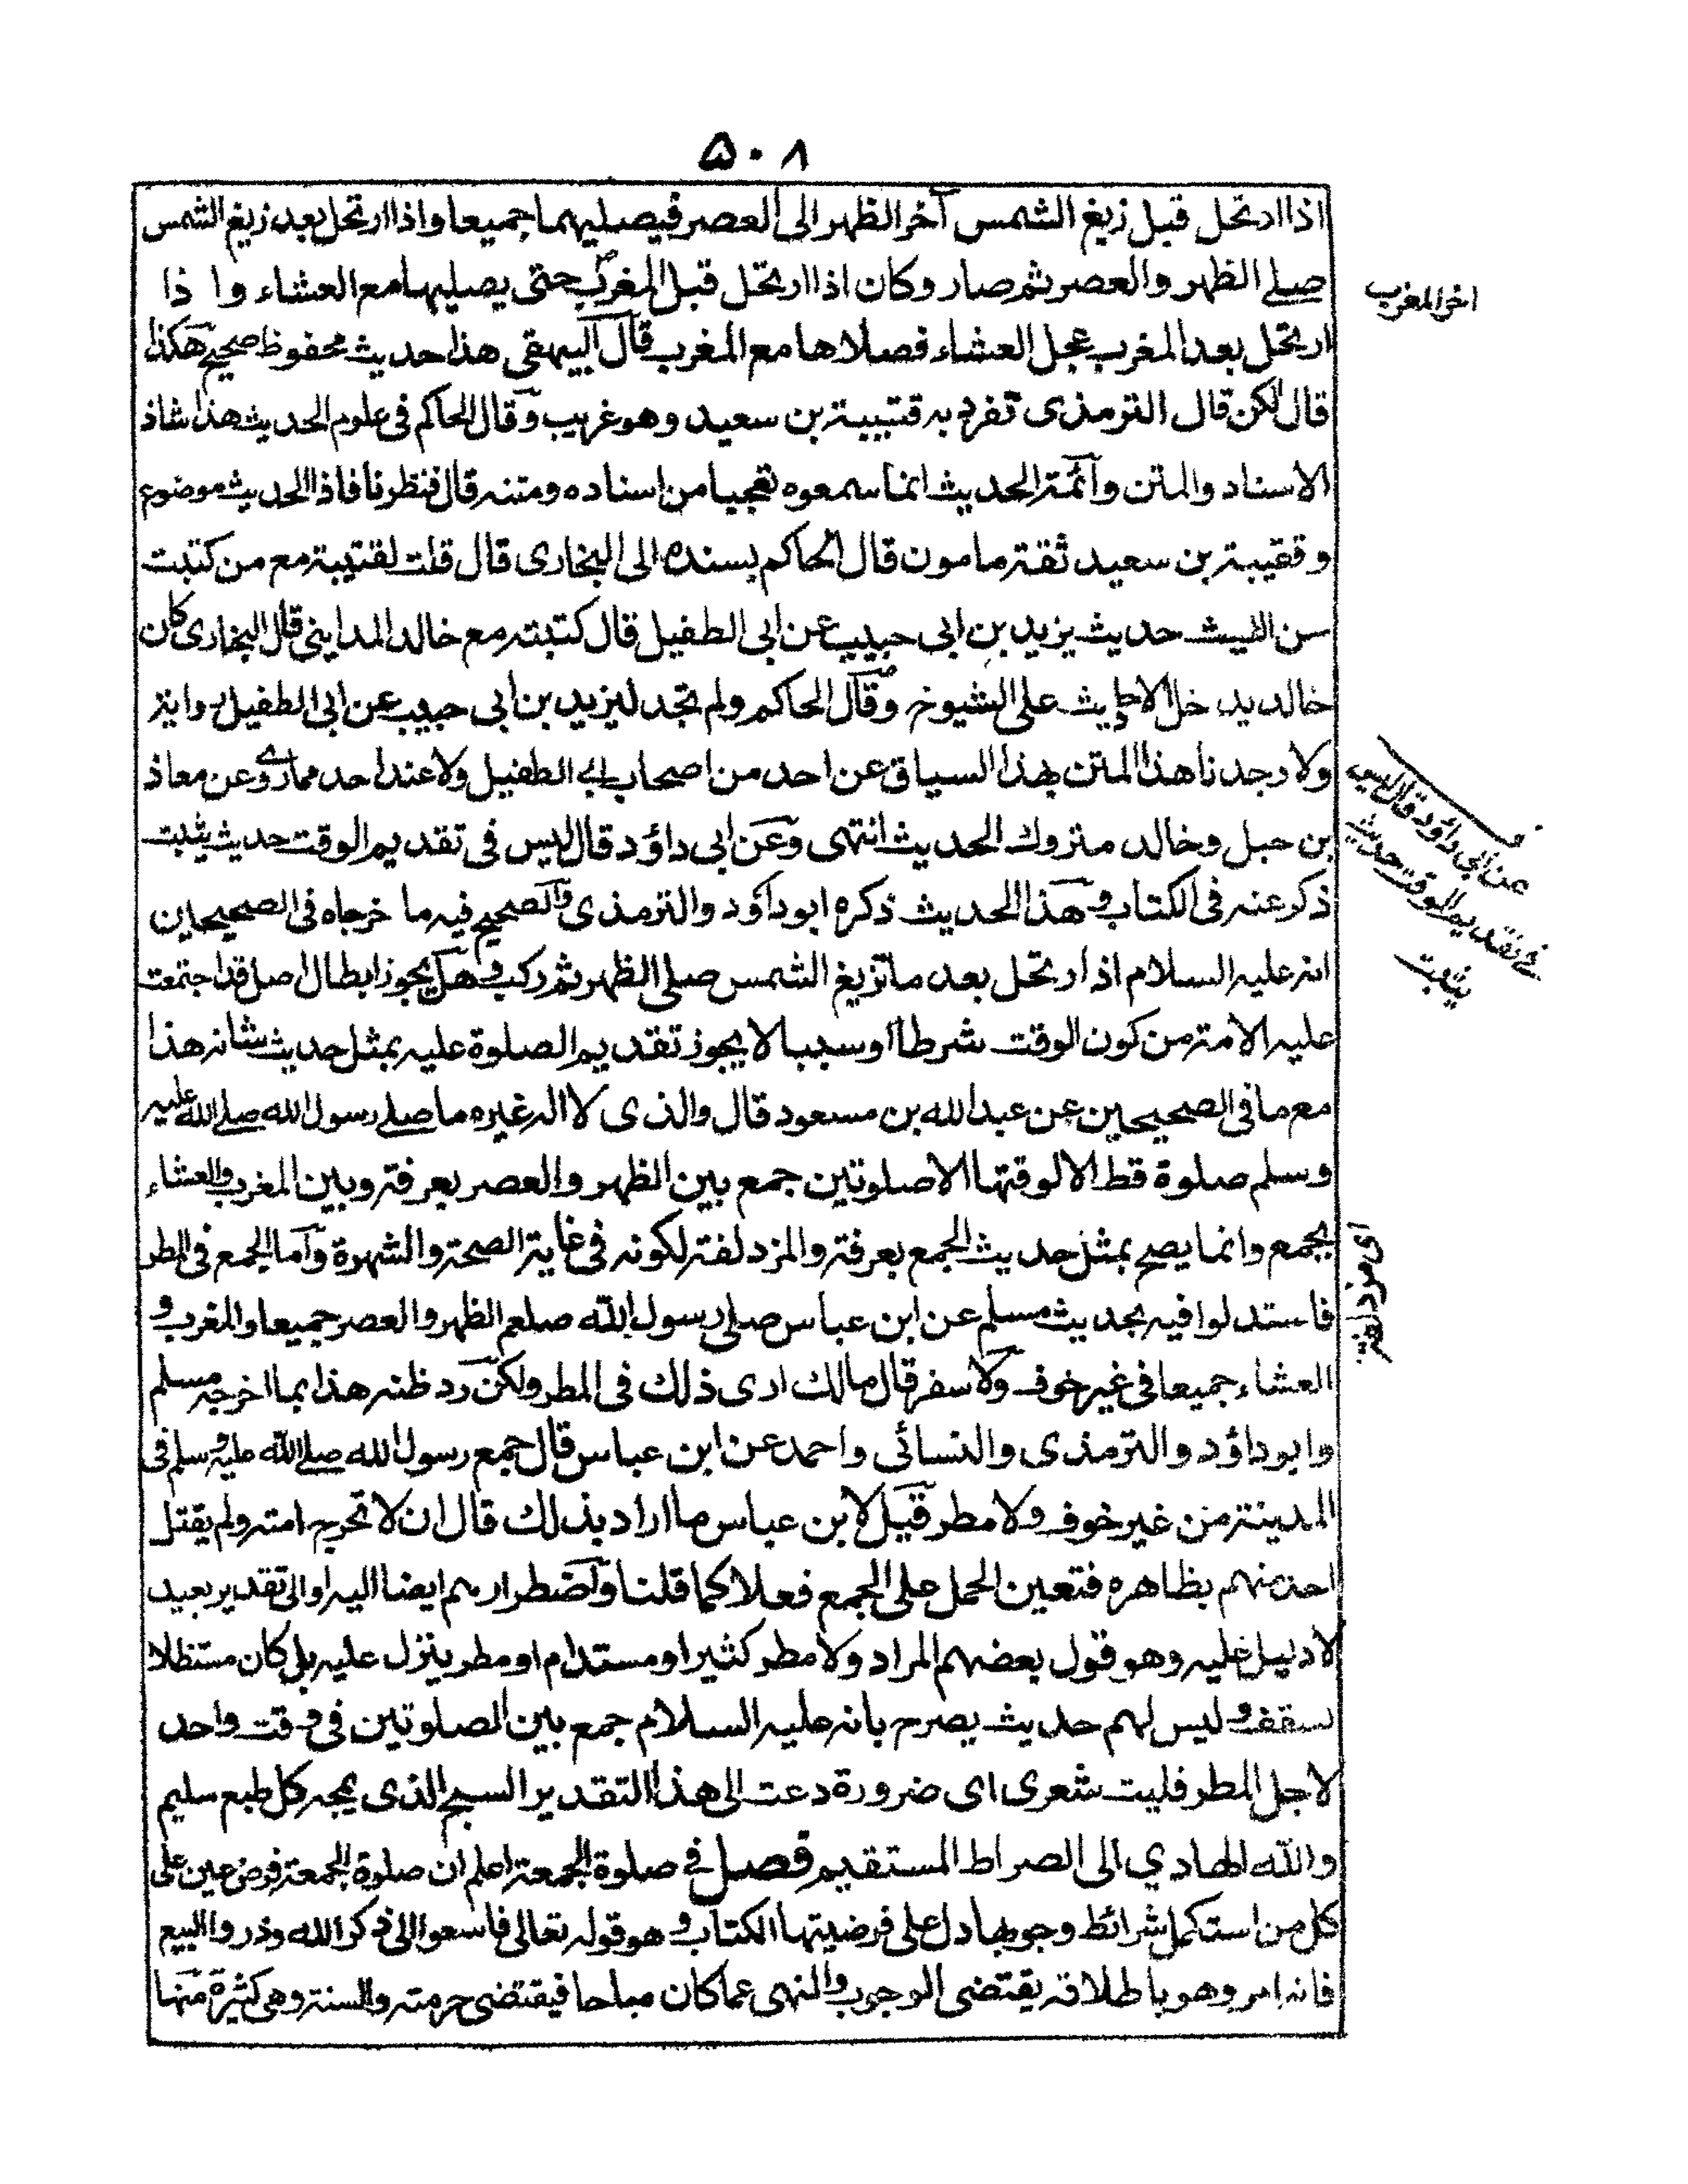 ۵۰۸
اذا ارتحل قبل زيغ الشمس آخر الظهر الى العصر فيصليهما جميعا واذا ارتحل بعد زيغ الشمس
صلے الظهر والعصر ثم صار وكان اذا ارتحل قبل المغرب حتى يصليها مع العشاء وا ذا
اخر المغرب
ارتحل بعد المغرب عجل العشاء فصلاها مع المغرب قال البيهقى هذا حديث محفوظ صحيح هكذا
قال لكن قال الترمذى تفرد به قتيبة بن سعيد وهو غريب وقال الحاكم فى علوم الحديث هذا شاذ
الاسناد والمتن وآئمة الحديث انما سمعوه تعجبا من اسناده ومتنه قال فنظرنا فاذا الحديث موضوع
وقتيبة بن سعيد ثقة مامون قال الحاكم بسنده الى البخارى قال قلت لقتيبة مع من كتبت
سن الليث حديث يزيد بن ابى حبيب عن ابى الطفيل قال كتبته مع خالد المداينى قال البخارى كان
خالد يدخل الاحاديث على الشيوخ وقال الحاكم ولم نجد ليزيد بن ابى حبيب عن ابى الطفيل رواية
ولا وجدنا هذا المتن بهذا السياق عن احد من اصحاب ابى الطفيل ولا عند احد ممن روى عن معاذ
بن جبل وخالد متروك الحديث انتهى وعن ابى داؤد قال ليس فى تقديم الوقت حديث يثبت
عن ابى داؤد قال ليس
فے تقديم الوقت حديث
يثبت
ذكر عنه فى الكتاب وهذا الحديث ذكره ابو داؤد والترمذى والصحيح فيه ما خرجاه فى الصحيحين
انه عليه السلام اذ ارتحل بعد ما تزيغ الشمس صلى الظهر ثم ركب وهل يجوز ابطال اصل قد اجتمعت
عليه الامة من كون الوقت شرطا اوسببا لا يجوز تقديم الصلوة عليه بمثل حديث شانه هذا
مع ما فى الصحيحين عن عبد الله بن مسعود قال والذى لا اله غيره ما صلے رسول الله صلے الله عليه
وسلم صلوة قط الا لوقتها الا صلوتين جمع بين الظهر والعصر بعرفة وبين المغرب والعشاء
بجمع وانما يصح بمثل حديث الجمع بعرفة والمزدلفة لكونه فى غاية الصحة والشهرة وآما الجمع فى المطر
اى مزدلفة
فاستدلوا فيه بحديث مسلم عن ابن عباس صلى رسول الله صلعم الظهر والعصر جميعا والمغرب و
العشاء جميعا فى غير خوف ولا سفر قال مالك ارى ذلك فى المطر ولكن رد ظنه هذا بما اخرجه مسلم
وابو داؤد والترمذى والنسائى واحمد عن ابن عباس قال جمع رسول الله صلے الله عليه وسلم فى
المدينة من غير خوف ولا مطر قيل لابن عباس ما اراد بذلك قال ان لا تحرج امته ولم يقتل
احد منهم بظاهره فتعين الحمل على الجمع فعلا كما قلنا وآضطرارهم ايضا اليه او الى تقدير بعيد
لا دليل عليه وهو قول بعضهم المراد ولا مطر كثيرا ومستدام او مطر ينزل عليه بل كان مستظلا
بسقف وليس لهم حديث يصرح بانه عليه السلام جمع بين الصلوتين فى وقت واحد
لاجل المطر فليت شعرى اى ضرورة دعت الى هذا التقدير السمج الذى يمجه كل طبع سليم
والله الهادي الى الصراط المستقيم فصل فے صلوة الجمعة اعلم ان صلوة الجمعة فرض عين على
كل من استكمل شرائط وجوبها دل على فرضيتها الكتاب وهو قوله تعالى فاسعوا الى ذكر الله وذروا البيع
فانه امر وهو باطلاقه يقتضى الوجوب والنهى عما كان مباحا فيقتضى حرمته والسنة وهى كثيرة منها